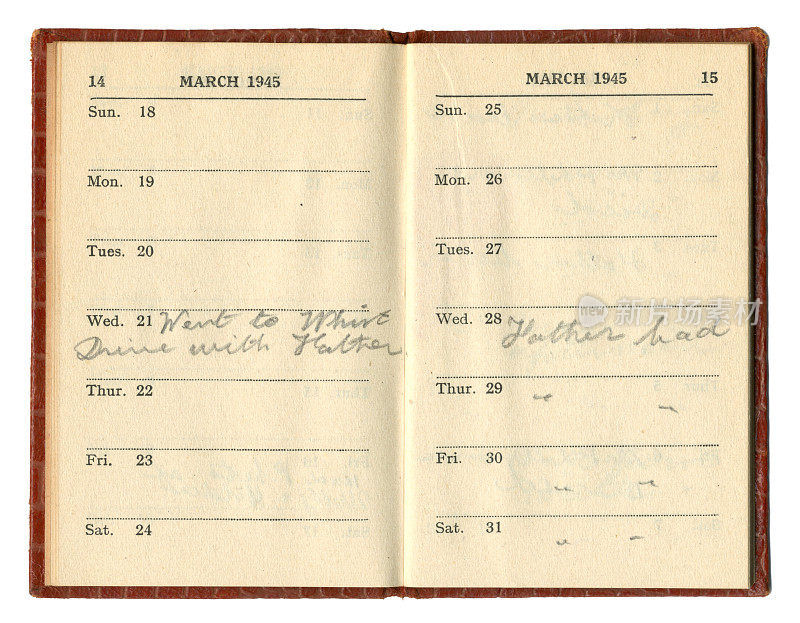 14 MARCH 1945
Sun. 18
Mon. 19
Tues. 20
Wed. 21 Went to Whist
Drive with Father
Thur. 22
Fri. 23
Sat. 24
MARCH 1945 15
Sun. 25
Mon. 26
Tues. 27
Wed. 28 Father bad
Thur. 29 " "
Fri. 30 " "
Sat. 31 " "
新片场素材